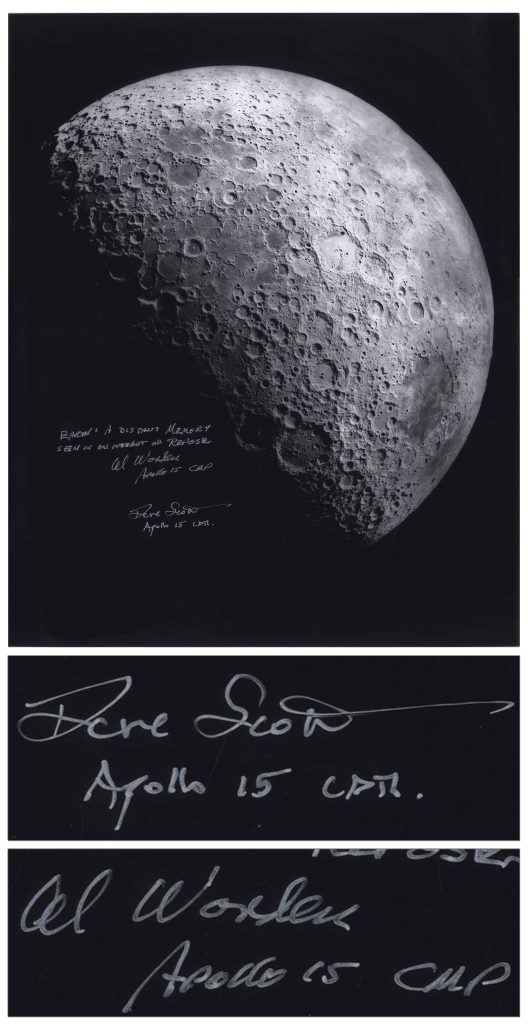 EARTH: A DISTANT MEMORY
SEEN IN AN INSTANT OF REPOSE
Al Worden
Apollo 15 CMP
Dave Scott
Apollo 15 CDR.
Dave Scott
Apollo 15 CDR.
Al Worden
Apollo 15 CMP